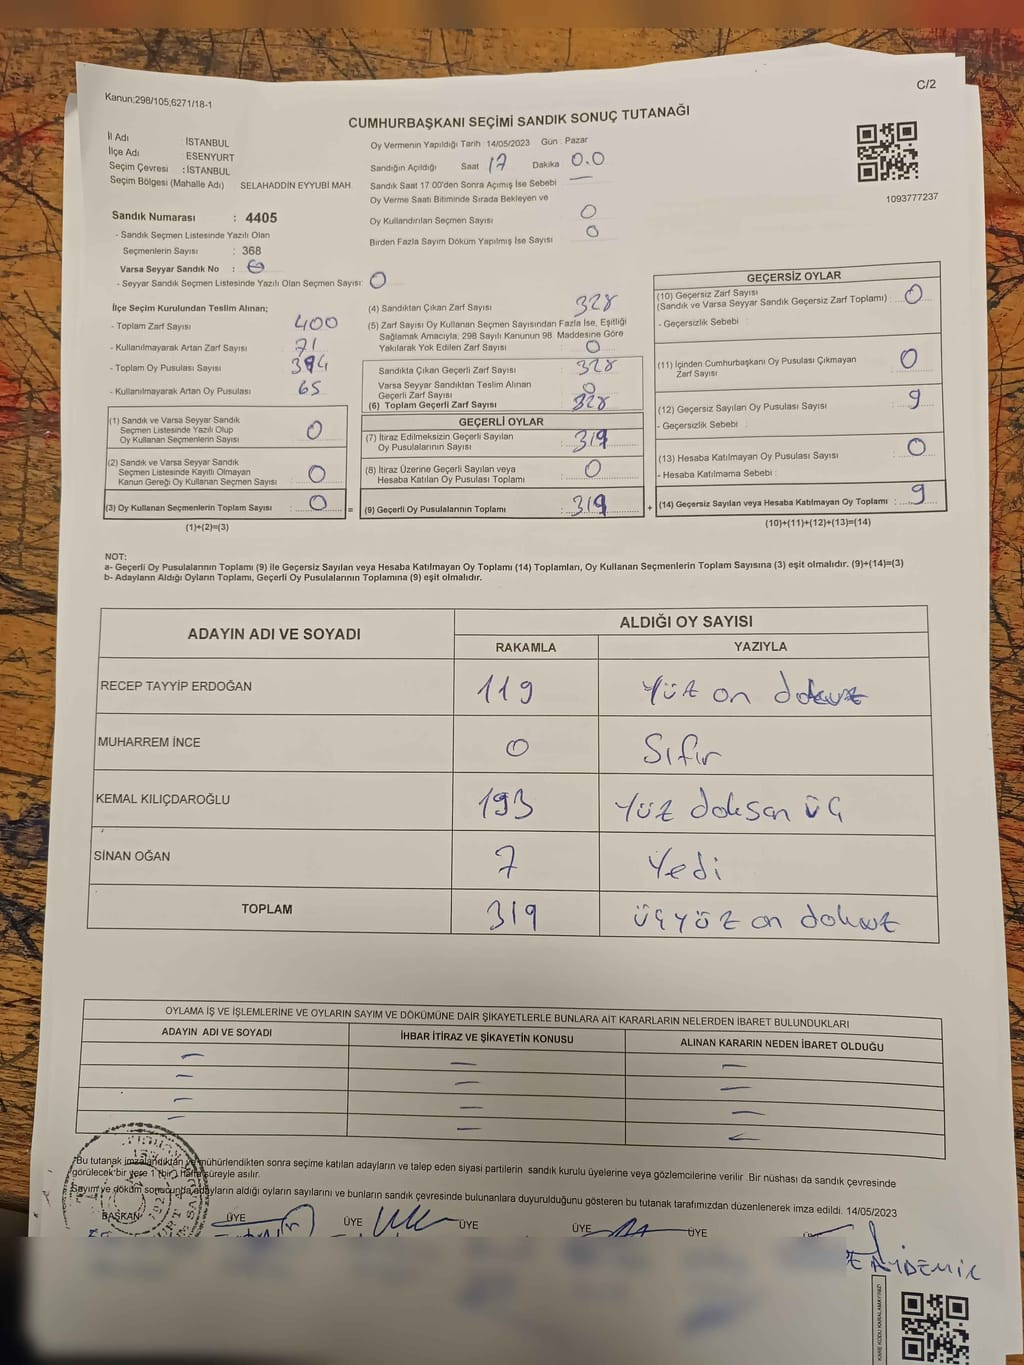 Kanun;298/105,6271/18-1
C/2
CUMHURBAŞKANI SEÇİMİ SANDIK SONUÇ TUTANAĞI
İl Adı : İSTANBUL
İlçe Adı : ESENYURT
Seçim Çevresi : İSTANBUL
Seçim Bölgesi (Mahalle Adı) SELAHADDİN EYYUBİ MAH.
Oy Vermenin Yapıldığı Tarih : 14/05/2023 Gün : Pazar
Sandığın Açıldığı Saat 17 Dakika 0.0
Sandık Saat 17:00'den Sonra Açımış İse Sebebi —
Oy Verme Saati Bitiminde Sırada Bekleyen ve
Oy Kullandırılan Seçmen Sayısı 0
Birden Fazla Sayım Döküm Yapılmış İse Sayısı 0
1093777237
Sandık Numarası : 4405
- Sandık Seçmen Listesinde Yazılı Olan
Seçmenlerin Sayısı : 368
Varsa Seyyar Sandık No : 0
- Seyyar Sandık Seçmen Listesinde Yazılı Olan Seçmen Sayısı: 0
İlçe Seçim Kurulundan Teslim Alınan;
- Toplam Zarf Sayısı 400
- Kullanılmayarak Artan Zarf Sayısı 71
- Toplam Oy Pusulası Sayısı 394
- Kullanılmayarak Artan Oy Pusulası 65
(1) Sandık ve Varsa Seyyar Sandık
Seçmen Listesinde Yazılı Olup
Oy Kullanan Seçmenlerin Sayısı : 0
(2) Sandık ve Varsa Seyyar Sandık
Seçmen Listesinde Kayıtlı Olmayan
Kanun Gereği Oy Kullanan Seçmen Sayısı : 0
(3) Oy Kullanan Seçmenlerin Toplam Sayısı : 0 =
(1)+(2)=(3)
(4) Sandıktan Çıkan Zarf Sayısı 328
(5) Zarf Sayısı Oy Kullanan Seçmen Sayısından Fazla İse, Eşitliği
Sağlamak Amacıyla; 298 Sayılı Kanunun 98. Maddesine Göre
Yakılarak Yok Edilen Zarf Sayısı 0
Sandıkta Çıkan Geçerli Zarf Sayısı 328
Varsa Seyyar Sandıktan Teslim Alınan
Geçerli Zarf Sayısı 0
(6) Toplam Geçerli Zarf Sayısı 328
GEÇERLİ OYLAR
(7) İtiraz Edilmeksizin Geçerli Sayılan
Oy Pusulalarının Sayısı : 319
(8) İtiraz Üzerine Geçerli Sayılan veya
Hesaba Katılan Oy Pusulası Toplamı : 0
(9) Geçerli Oy Pusulalarının Toplamı : 319 +
GEÇERSİZ OYLAR
(10) Geçersiz Zarf Sayısı
(Sandık ve Varsa Seyyar Sandık Geçersiz Zarf Toplamı) : 0
- Geçersizlik Sebebi :
(11) İçinden Cumhurbaşkanı Oy Pusulası Çıkmayan
Zarf Sayısı 0
(12) Geçersiz Sayılan Oy Pusulası Sayısı 9
- Geçersizlik Sebebi :
(13) Hesaba Katılmayan Oy Pusulası Sayısı 0
- Hesaba Katılmama Sebebi :
(14) Geçersiz Sayılan veya Hesaba Katılmayan Oy Toplamı : 9
(10)+(11)+(12)+(13)=(14)
NOT:
a- Geçerli Oy Pusulalarının Toplamı (9) ile Geçersiz Sayılan veya Hesaba Katılmayan Oy Toplamı (14) Toplamları, Oy Kullanan Seçmenlerin Toplam Sayısına (3) eşit olmalıdır. (9)+(14)=(3)
b- Adayların Aldığı Oyların Toplamı, Geçerli Oy Pusulalarının Toplamına (9) eşit olmalıdır.
ADAYIN ADI VE SOYADI ALDIĞI OY SAYISI
RAKAMLA YAZIYLA
RECEP TAYYİP ERDOĞAN 119 Yüz on dokuz
MUHARREM İNCE 0 Sıfır
KEMAL KILIÇDAROĞLU 193 Yüz doksan üç
SİNAN OĞAN 7 Yedi
TOPLAM 319 üçyüz on dokuz
OYLAMA İŞ VE İŞLEMLERİNE VE OYLARIN SAYIM VE DÖKÜMÜNE DAİR ŞİKAYETLERLE BUNLARA AİT KARARLARIN NELERDEN İBARET BULUNDUKLARI
ADAYIN ADI VE SOYADI İHBAR İTİRAZ VE ŞİKAYETİN KONUSU ALINAN KARARIN NEDEN İBARET OLDUĞU
— — —
— — —
— — —
— — —
*Bu tutanak imzalandıktan ve mühürlendikten sonra seçime katılan adayların ve talep eden siyasi partilerin sandık kurulu üyelerine veya gözlemcilerine verilir .Bir nüshası da sandık çevresinde
görülecek bir yere 1 (bir) Hafta süreyle asılır.
Sayım ve döküm sonucunda adayların aldığı oyların sayılarını ve bunların sandık çevresinde bulunanlara duyurulduğunu gösteren bu tutanak tarafımızdan düzenlenerek imza edildi. 14/05/2023
BAŞKAN ÜYE ÜYE ÜYE ÜYE ÜYE
KARE KODU KARALAMAYINIZ!